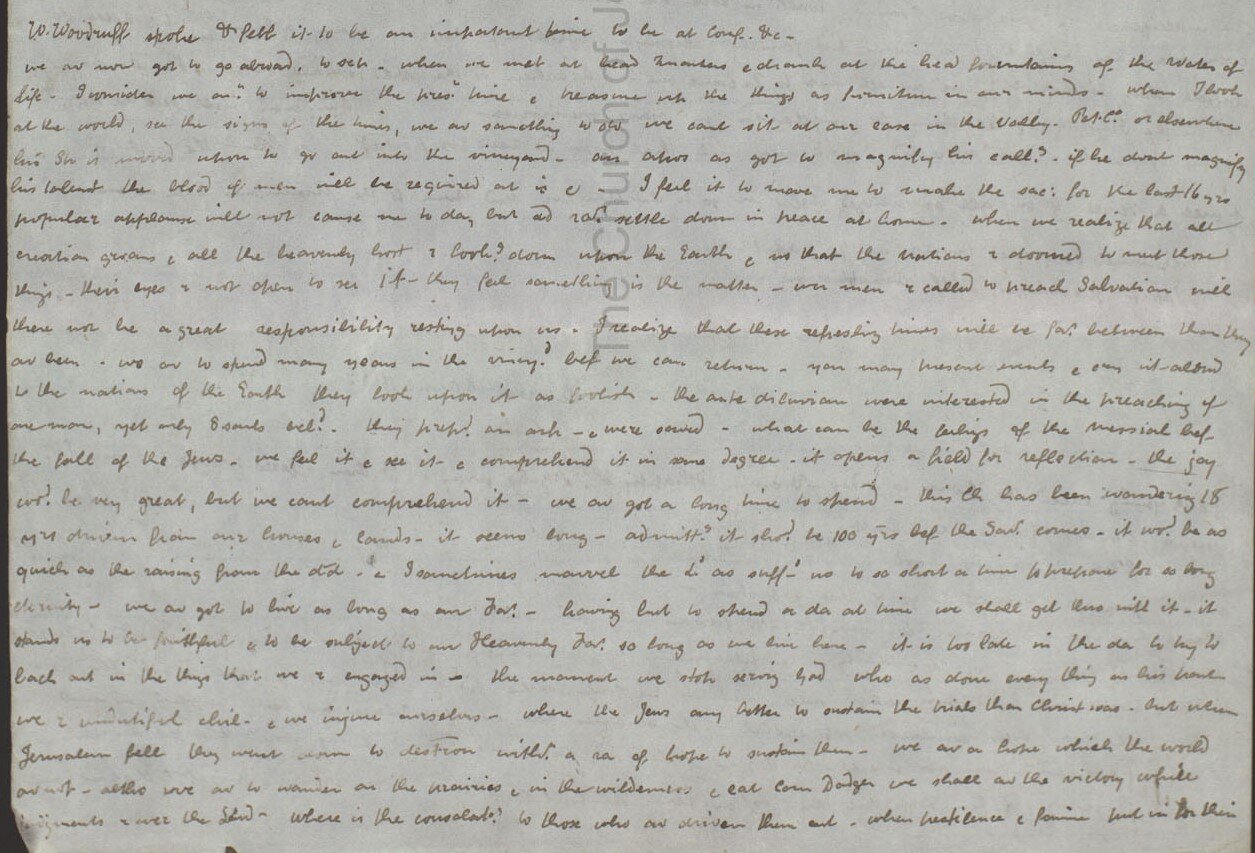 W. Woodruff spoke & felt it to be an important time to be at Conf. &c -
we av now got to go abroad, to sch - when we met at head Quarters & drank at the head fountains of the Water of
life - I consider we an.t to improve the pres.t time & treasure up the things as furniture in our minds - when I look
at the world, see the signs of the times, we av something to do we cant sit at our ease in the Valley - Pot. Co. or elsewhere
his Sp is moved upon to go out into the vineyard - an apos as got to magnify his call.g - if he dont magnify
his talent the blood of men will be required at is - I feel it to move me to make the sac: for the last 16 yrs
popular applause will not cause me to day but wd ra.r settle down in peace at home - when we realize that all
creation groans, & all the heavenly host r look.g down upon the Earth & us that the nations r doomed to meet those
things - their eyes r not open to see it - they feel something is the matter - wen men r called to preach Salvation will
there not be a great responsibility resting upon us - I realize that these refreshing times will be far.r between than they
av been - we av to spend many years in the viney.d bef we can return - you may present events &
to the nations of the Earth they look upon it as foolish - the ante diluvian were interested in the preaching of
one man, yet only 8 souls bel.d - they prep.d an ark - & were saved - what can be the feelings of the Messiah bef
the fall of the Jews - we feel it & see it & comprehend it in some degree - it opens a field for reflection - the joy
wo.d be very great, but we cant comprehend it - we av got a long time to spend - this Ch has been wandering 18
yrs driven from our houses & lands - it seems long - admitt.g it sho.d be 100 yrs bef the Sav.r comes - it wo.d be as
quick as the raising from the d'd - & I sometimes marvel the L.d as suff.d us to so short a time to prepare for so long
eternity - we av got to live as long as our Far.r - having but to spend a da at time we shall get thro with it - it
stands us to be faithful & to be subject to our Heavenly Far.r so long as we live here - it is too late in the da to try to
back out in the things that we r engaged in - the moment we stop serving God who as done every thing in his power
we r undutiful chil - & we injure ourselves - where the Jews any better to sustain the trials than Christ was - but when
Jerusalem fell they went down to destron witht. a ra of hope to sustain them - we av a hope which the world
av not - altho we av to wander on the prairies & in the wilderness & eat Corn Dodger we shall av the victory while
judgments r over the land - where is the consolat.n to those who av driven them out - when pestilence & famine put in for their
The Church of J